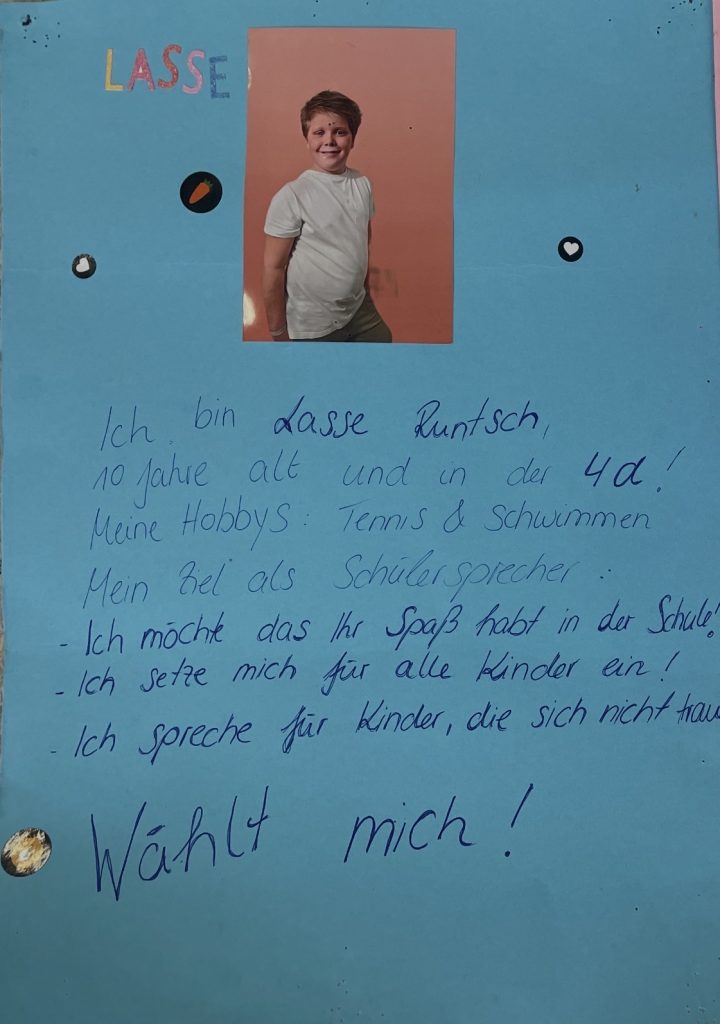 LASSE
Ich bin Lasse Runtsch,
10 Jahre alt und in der 4d!
Meine Hobbys: Tennis & Schwimmen
Mein Ziel als Schülersprecher:
- Ich möchte das Ihr Spaß habt in der Schule!
- Ich setze mich für alle Kinder ein!
- Ich spreche für Kinder, die sich nicht trau
Wählt mich!